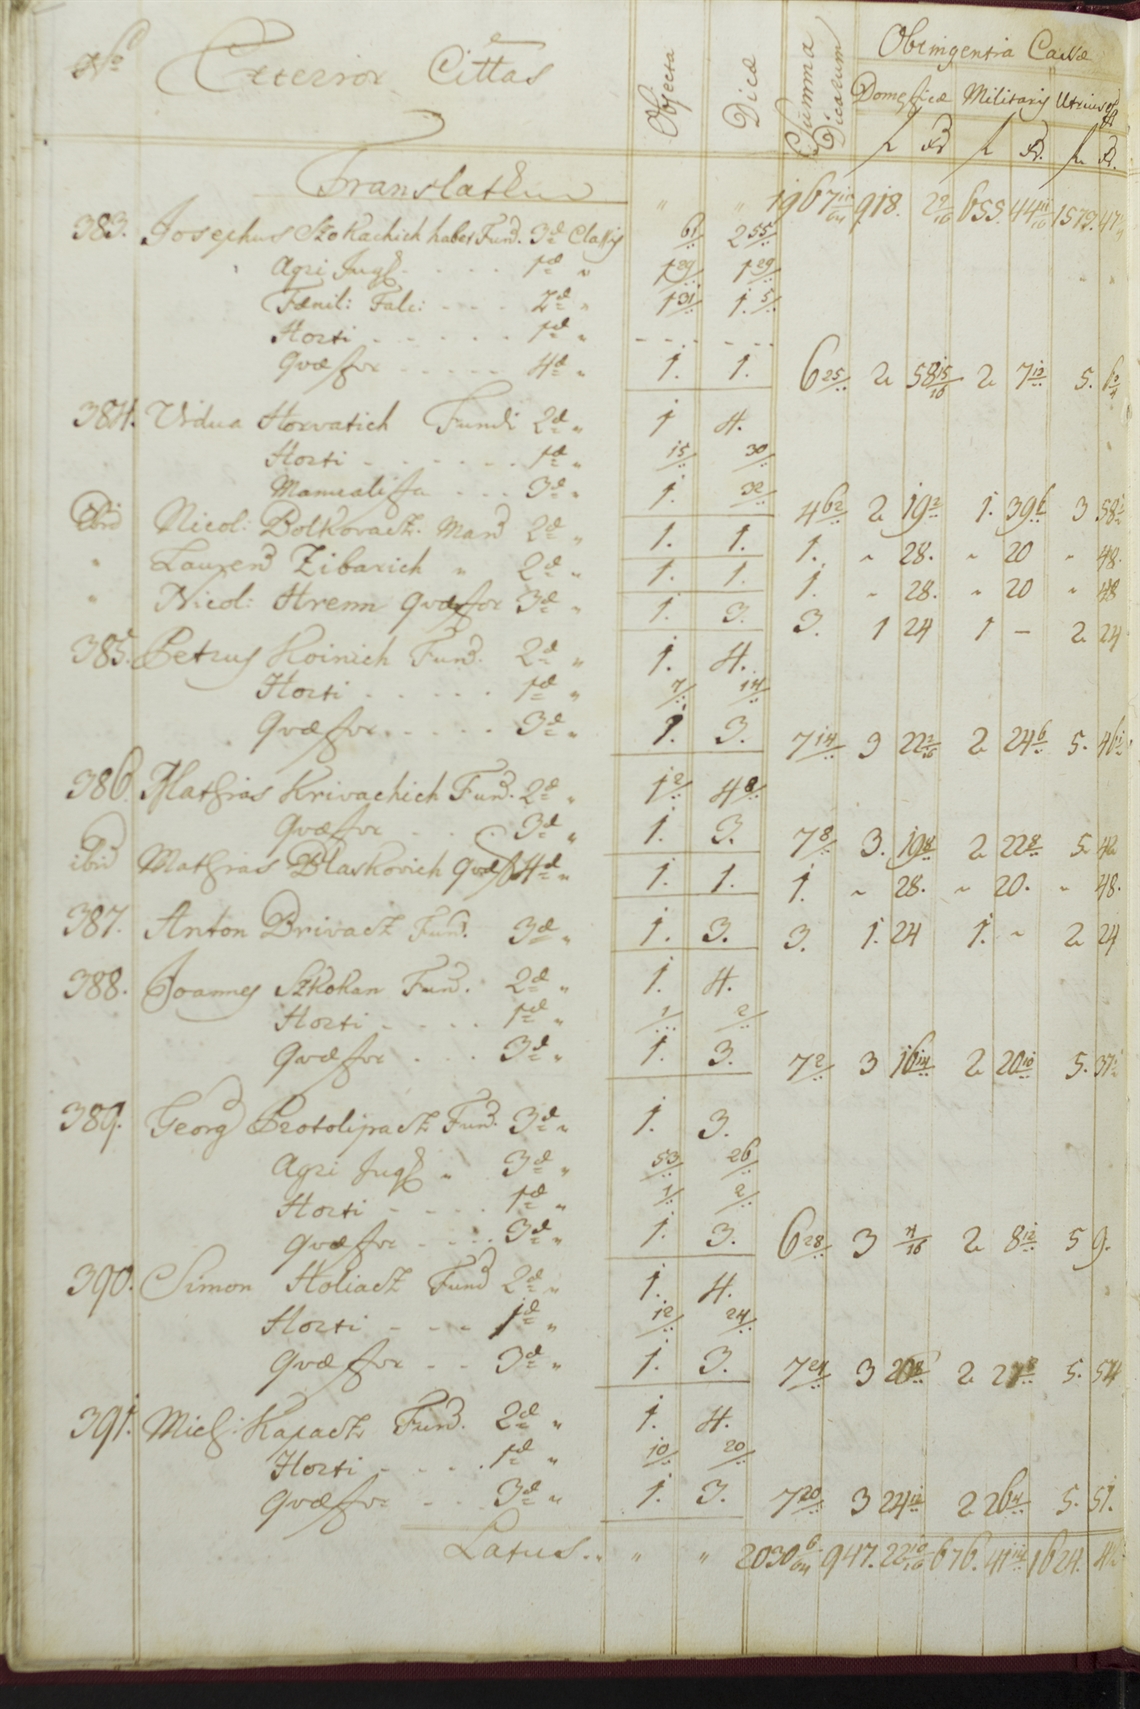 Nº Exterior Cittas Objecta Dicæ Summa Dicarum Obtingentia Cassæ
Domesticæ Militaris Utriusq
f xr f xr. f xr.
Translatum " " 1967 918. 655. 44 1572. 47
383. Josephus Szokachich habet Fund. 3æ Classis 61 2 55
Agri Jug. - - - - 1æ " 1 29 1 29
Fœnil: Falc: - - - - 2æ " 1 31 1. 5
Horti - - - - - - 1æ " - - - - - - -
Quæstor - - - - - 4æ " 1. 1. 6 25 2 58 15/16 2 7 12 5. 6
384. Vidua Horvatich Fundi 2æ " 1 4.
Horti - - - - - - 1æ " 15 30
Manualista - - - 3æ " 1. 32 4 62 2 19 2 1. 39 6 3 58
Ibid Nicol: Bolkovacz. Man 2æ " 1. 1. 1. " 28. " 20 " 48.
" Laurend Zibarich " 2æ " 1. 1. 1. " 28. " 20 " 48
" Nicol: Hrenn Quæstor 3æ " 1. 3. 3. 1 24 1 - 2 24
385. Petrus Koinich Fund. 2æ " 1. 4.
Horti - - - - - - 1æ " 7 14
Quæstor. - - - - 3æ " 1. 3. 7 14 3 22 2/16 2 24 6 5. 46
386. Mathias Krivachich Fund. 2æ " 1 2 4 8
Quæstor - - 3æ " 1. 3. 7 8 3. 19 8 2 22 8 5 42
ibid Mathias Blaskovich Quæst 4æ " 1. 1. 1. " 28. " 20. " 48.
387. Anton Brivacz Fund. 3æ " 1. 3. 3. 1. 24 1. " 2 24
388. Joannes Szkokan Fund. 2æ " 1. 4.
Horti - - - - 1æ " 1 2
Quæstor - - - 3æ " 1. 3. 7 2 3 16 14 2 20 10 5. 37
389. Georg Protolipacz Fund. 3æ " 1. 3.
Agri Jug " 3æ " 53 26
Horti - - - - 1æ " 1 2
Quæstor - - - - 3æ " 1. 3. 6 28 3 11/16 2 8 12 5 9.
390. Simon Holiacz Fund 2æ " 1. 4.
Horti - - - 1æ " 12 24
Quæstor - - 3æ " 1. 3. 7 24 3 2 27 8 5. 54
391. Mich: Kapacz Fund. 2æ " 1. 4.
Horti - - - - 1æ " 10 20
Quæstor - - - 3æ " 1. 3. 7 20 3 24 12 2 26 4 5. 51.
Latus. " " " 2030 6/64 947. 22 10/16 676. 41 14 1624. 4